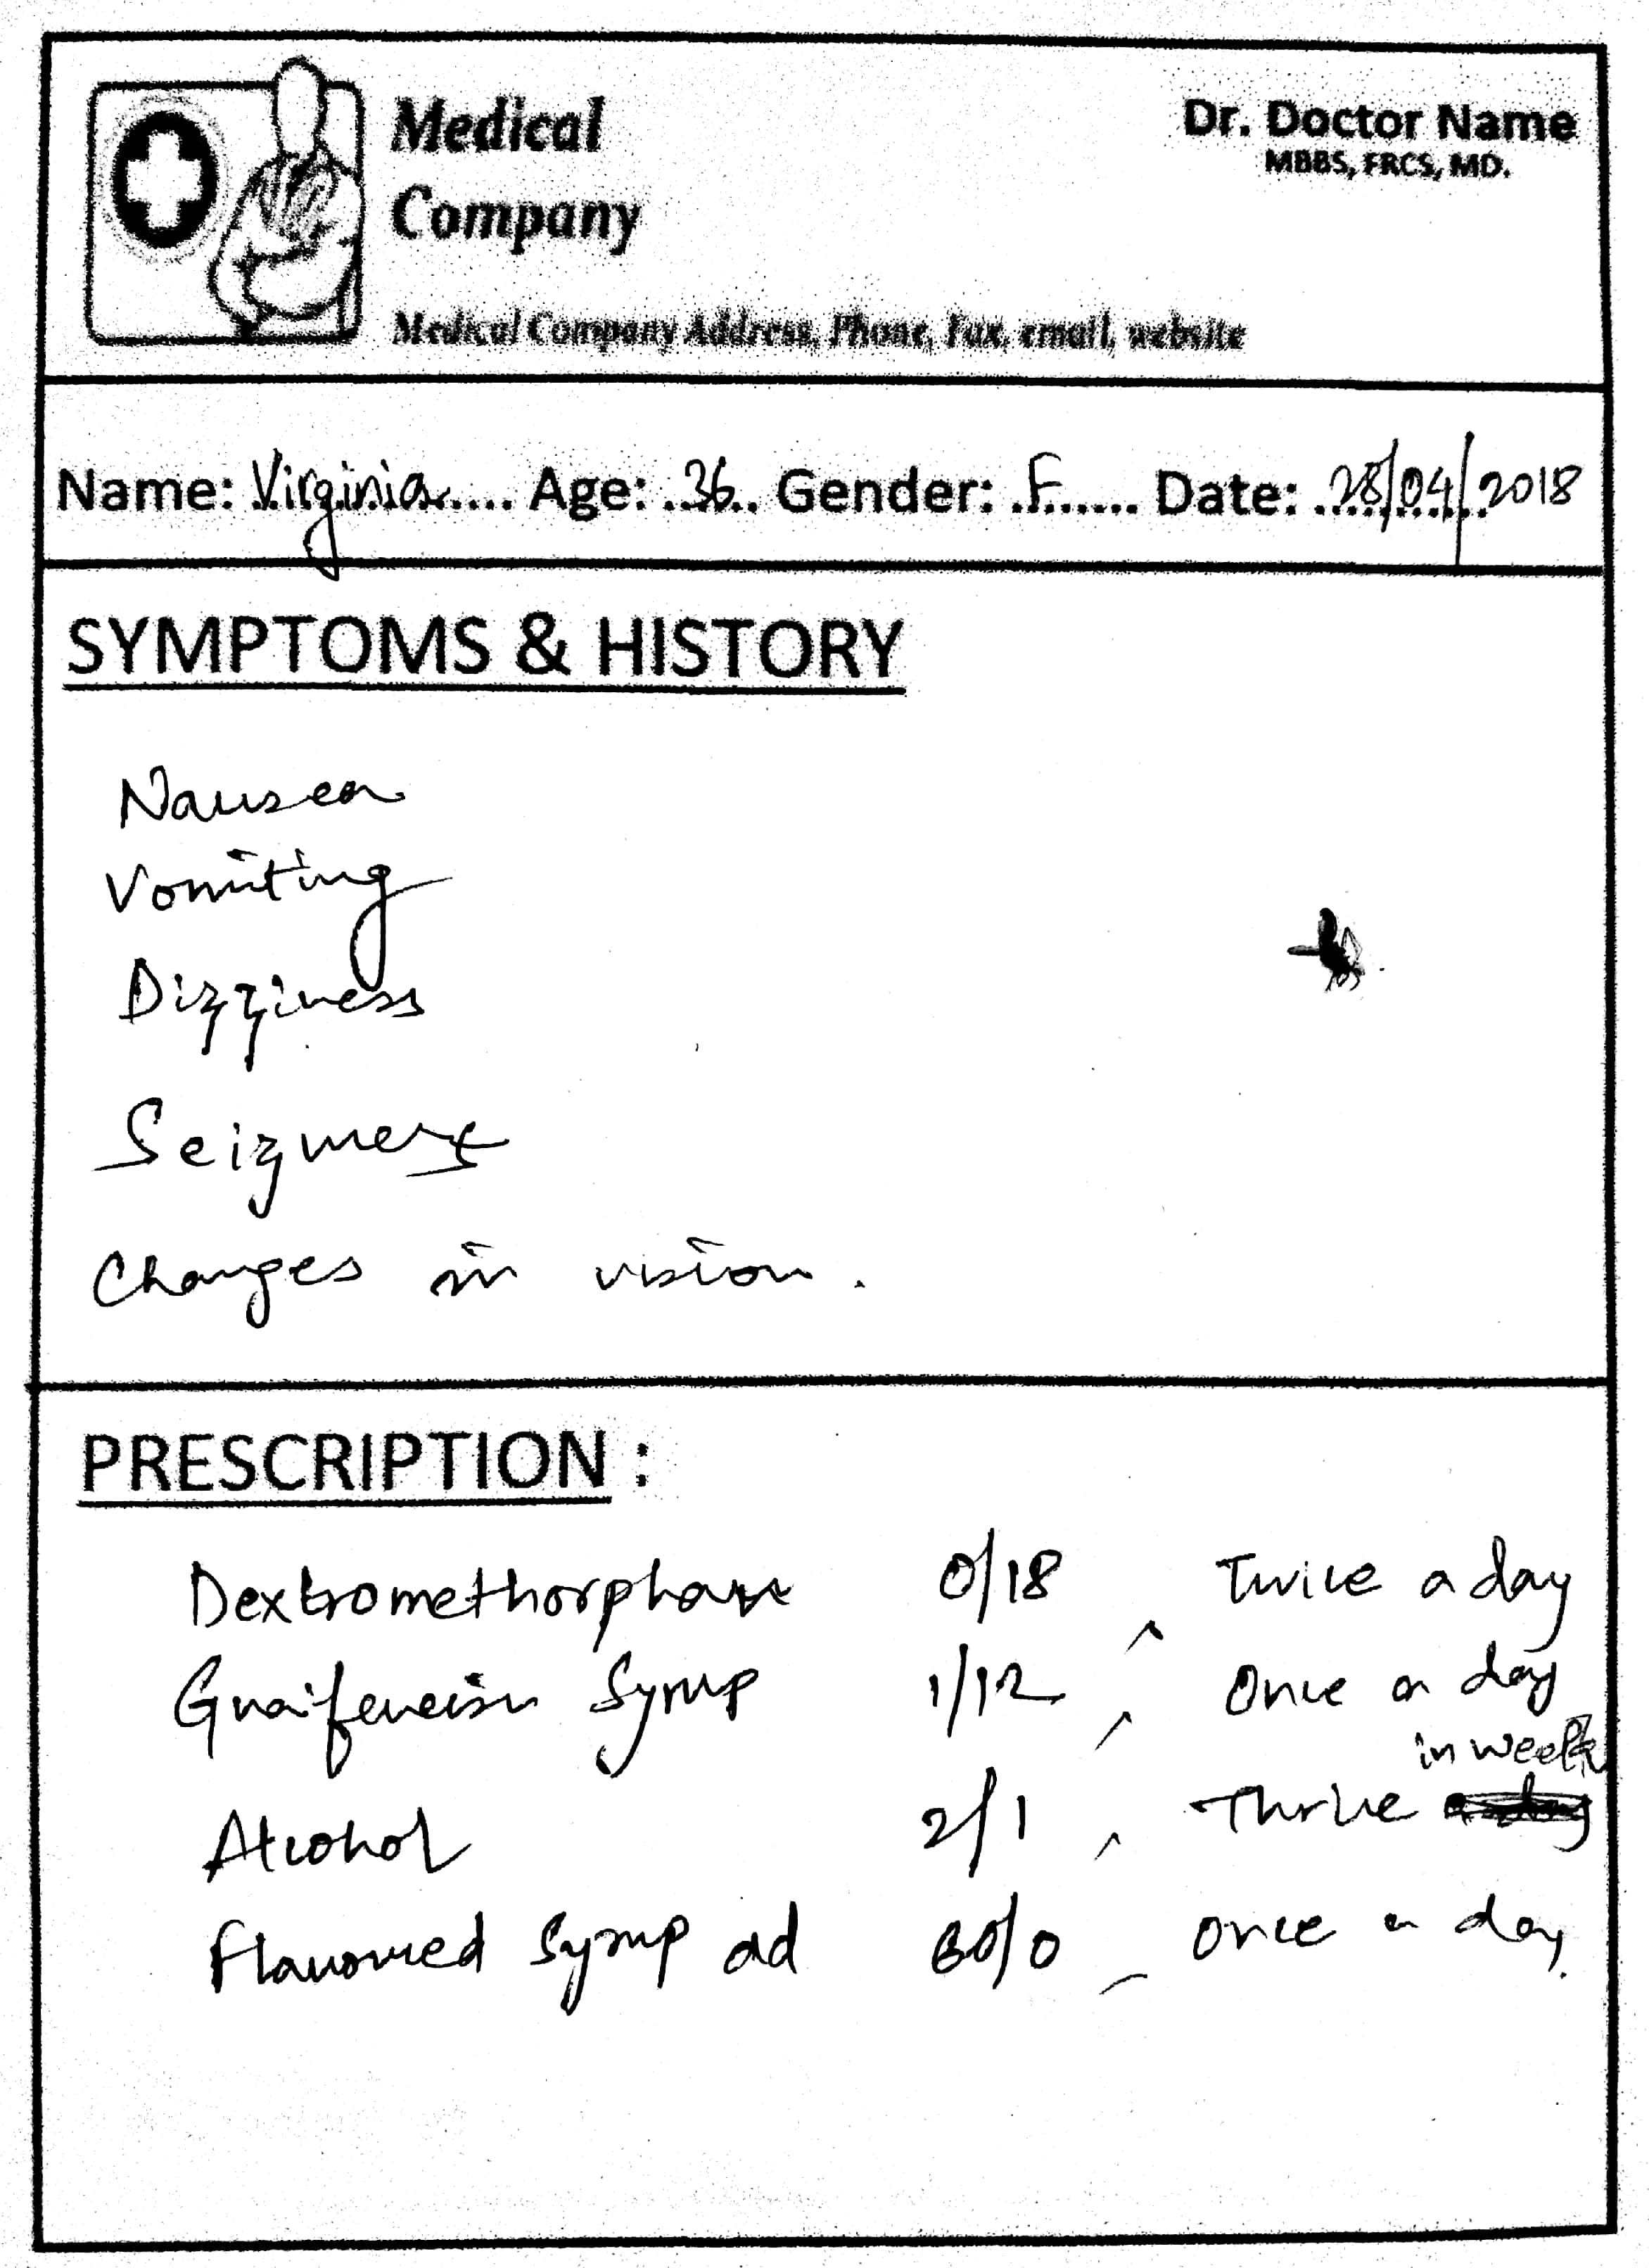 Medical
Company
Dr. Doctor Name
MBBS, FRCS, MD.
Medical Company Address, Phone, Fax, email, website
Name: Virginia Age: 36 Gender: F Date: 28/04/2018
SYMPTOMS & HISTORY
Nausea
Vomiting
Dizziness
Changes in vision.
PRESCRIPTION :
Dextromethorphan 0/18 Twice a day
Guaifeneisn Syrup 1/12 Once a day
in week
Alcohol 2/1 Thrice
Flavoured Syrup ad /0 Once a day.